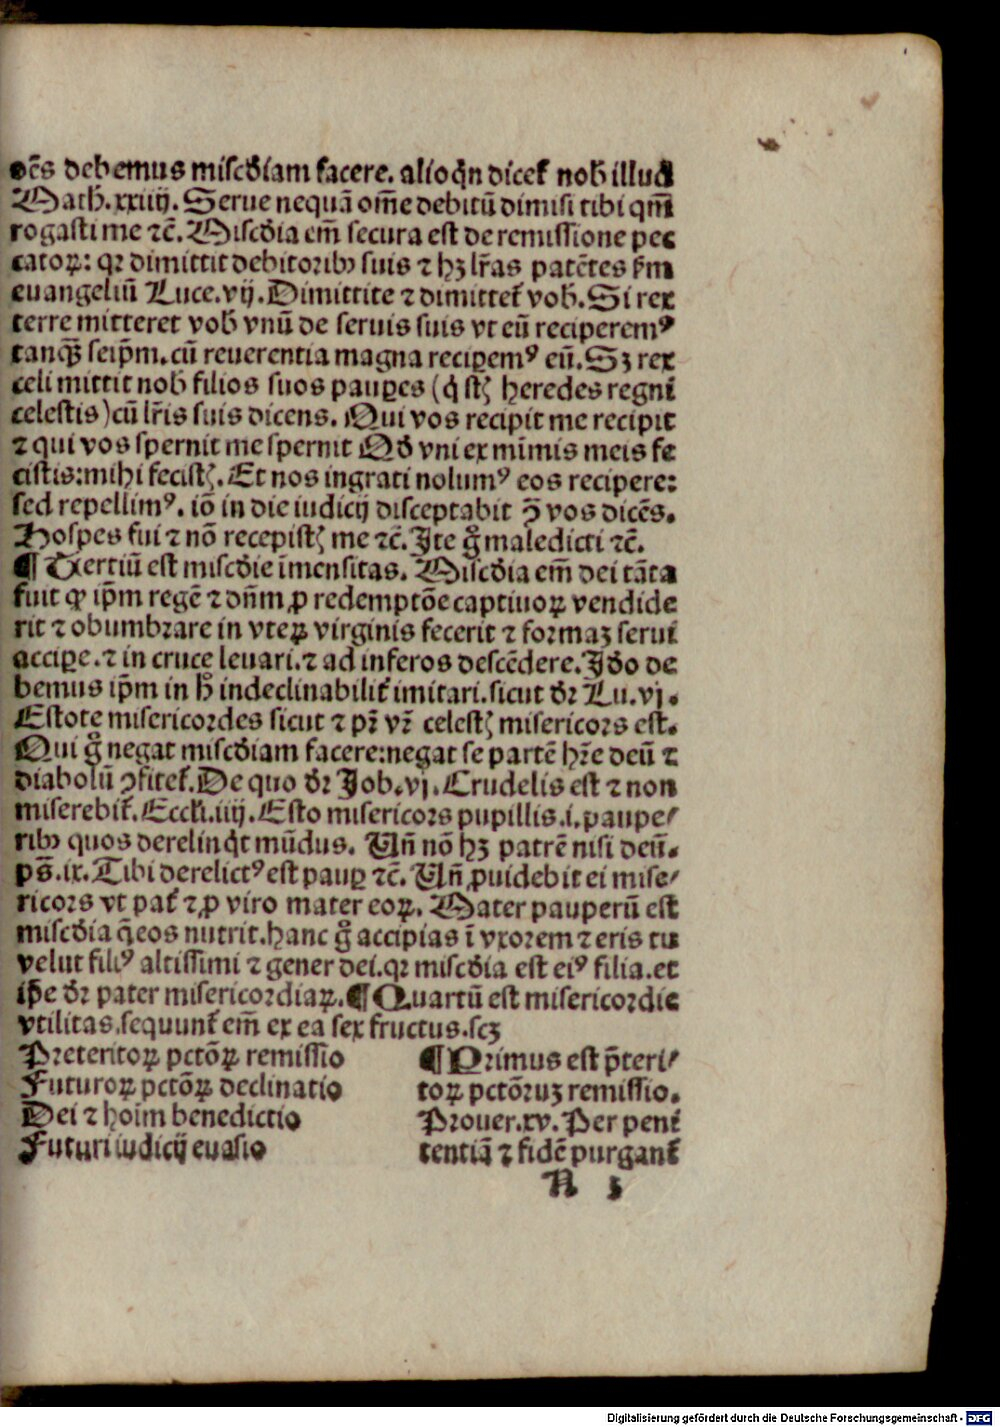 oēs debemus miscd̄iam facere. alioqͥn dicet᷑ nob̄ illud
Math̄. xxiiij. Serue nequā om̄e debitū dimisi tibi qm̄
rogasti me ⁊c̄. Miscd̄ia em̄ secura est de remissione pec
catoꝝ: qꝛ dimittit debitoribꝰ suis ⁊ hꝫ lr̄as patētes ẜm
euangeliū Luce. vij. Dimittite ⁊ dimittet᷑ vob̄. Si rex
terre mitteret vob̄ vnū de seruis suis vt eū reciperemꝰ
tanqꝫ̄ seip̄m. cū reuerentia magna recipemꝰ eū. Sꝫ rex
celi mittit nob̄ filios suos pauꝑes (qͥ stꝭ heredes regni
celestis) cū lr̄is suis dicens. Qui vos recipit me recipit
⁊ qui vos spernit me spernit Qd̄ vni ex mīmis meis fe
cistis: mihi fecistꝭ. Et nos ingrati nolumꝰ eos recipere:
sed repellimꝰ. iō in die iudicij disceptabit ꝯ̄ vos dicēs.
Hospes fui ⁊ nō recepistꝭ me ⁊c̄. Ite gͦ maledicti ⁊c̄.
¶ Tertiū est miscd̄ie īmensitas. Miscd̄ia em̄ dei tāta
fuit ꝙ ip̄m regē ⁊ dn̄m ꝓ redemptōe captiuoꝝ vendide
rit ⁊ obumbrare in vteꝝ virginis fecerit ⁊ formaꝫ serui
acciꝑe. ⁊ in cruce leuari. ⁊ ad inferos descēdere. Id̄o de
bemus ip̄m in hͦ indeclinabilit᷑ imitari. sicut dꝛ̄ Lu. vj.
Estote misericordes sicut ⁊ pr̄ vr̄ celestꝭ misericors est.
Qui gͦ negat miscd̄iam facere: negat se partē hr̄e deū ⁊
diabolū ꝯfitet᷑. De quo dꝛ̄ Job. vj. Crudelis est ⁊ non
miserebit᷑. Eccli. iiij. Esto misericors pupillis. i. paupe⸗
ribꝰ quos derelinqͥt mūdus. Vn̄ nō hꝫ patrē nisi deū.
ps̄. ix. Tibi derelictꝰ est pauꝑ ⁊c̄. Vn̄ ꝓuidebit ei mise⸗
ricors vt pat᷑ ⁊ ꝓ viro mater eoꝝ. Mater pauperū est
miscd̄ia q̄ eos nutrit. hanc gͦ accipias ī vxorem ⁊ eris tu
velut filiꝰ altissimi ⁊ gener dei. qꝛ miscd̄ia est eiꝰ filia. et
ip̄e dꝛ̄ pater misericordiaꝝ. ¶ Quartū est misericordie
vtilitas. sequunt᷑ em̄ ex ea sex fructus. scꝫ
Preteritoꝝ pctōꝝ remissio
Futuroꝝ pctōꝝ declinatio
Dei ⁊ hoīm benedictio
Futuri iudicij euasio
¶ Primus est p̄teri⸗
toꝝ pctōruꝫ remissio.
Prouer. xv. Per peni
tentiā ⁊ fidē purgant᷑
Digitalisierung gefördert durch die Deutsche Forschungsgemeinschaft - DFG